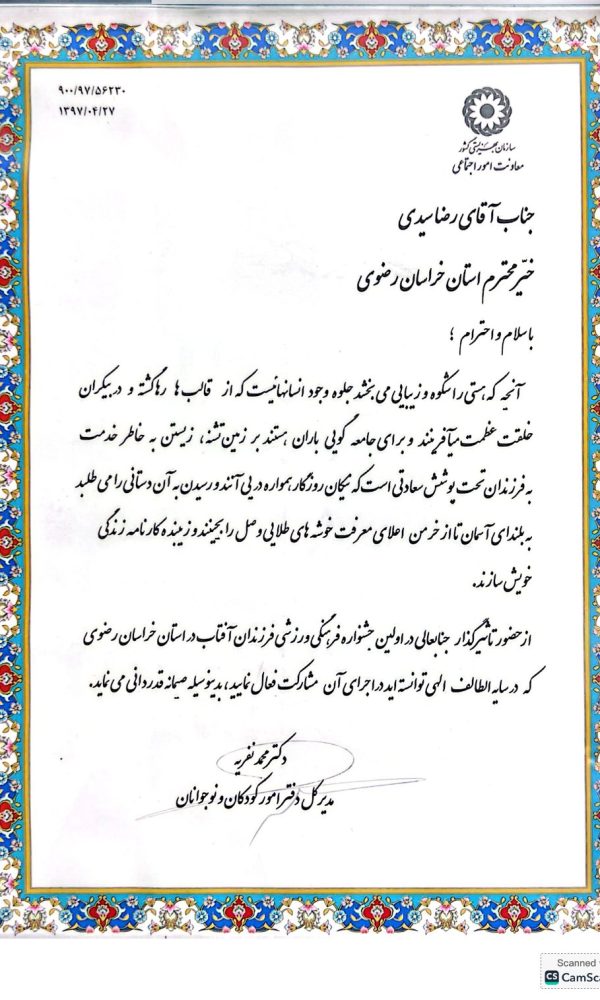 ۹۰۰/۹۷/۵۶۲۳۰
۱۳۹۷/۰۴/۲۷
سازمان بهزیستی کشور
معاونت امور اجتماعی
جناب آقای رضا سیدی
خیّر محترم استان خراسان رضوی
با سلام و احترام ؛
آنچه که هستی را شکوه و زیبایی می بخشد جلوه وجود انسانهائیست که از قالب ها رها گشته و در بیکران
خلقت عظمت میآفرینند و برای جامعه گویی باران هستند بر زمین تشنه، زیستن به خاطر خدمت
به فرزندان تحت پوشش سعادتی است که نیکان روزگار همواره در پی آنند و رسیدن به آن دستانی را می طلبد
به بلندای آسمان تا از خرمن اعلای معرفت خوشه های طلایی وصل را بچینند و زیبنده کارنامه زندگی
خویش سازند.
از حضور تأثیرگذار جنابعالی در اولین جشنواره فرهنگی ورزشی فرزندان آفتاب در استان خراسان رضوی
که در سایه الطالف الهی توانسته اید در اجرای آن مشارکت فعال نمایید، بدینوسیله صمیمانه قدردانی می نماید.
دکتر محمد نفریه
مدیر کل دفتر امور کودکان و نوجوانان
Scanned
CS CamSca